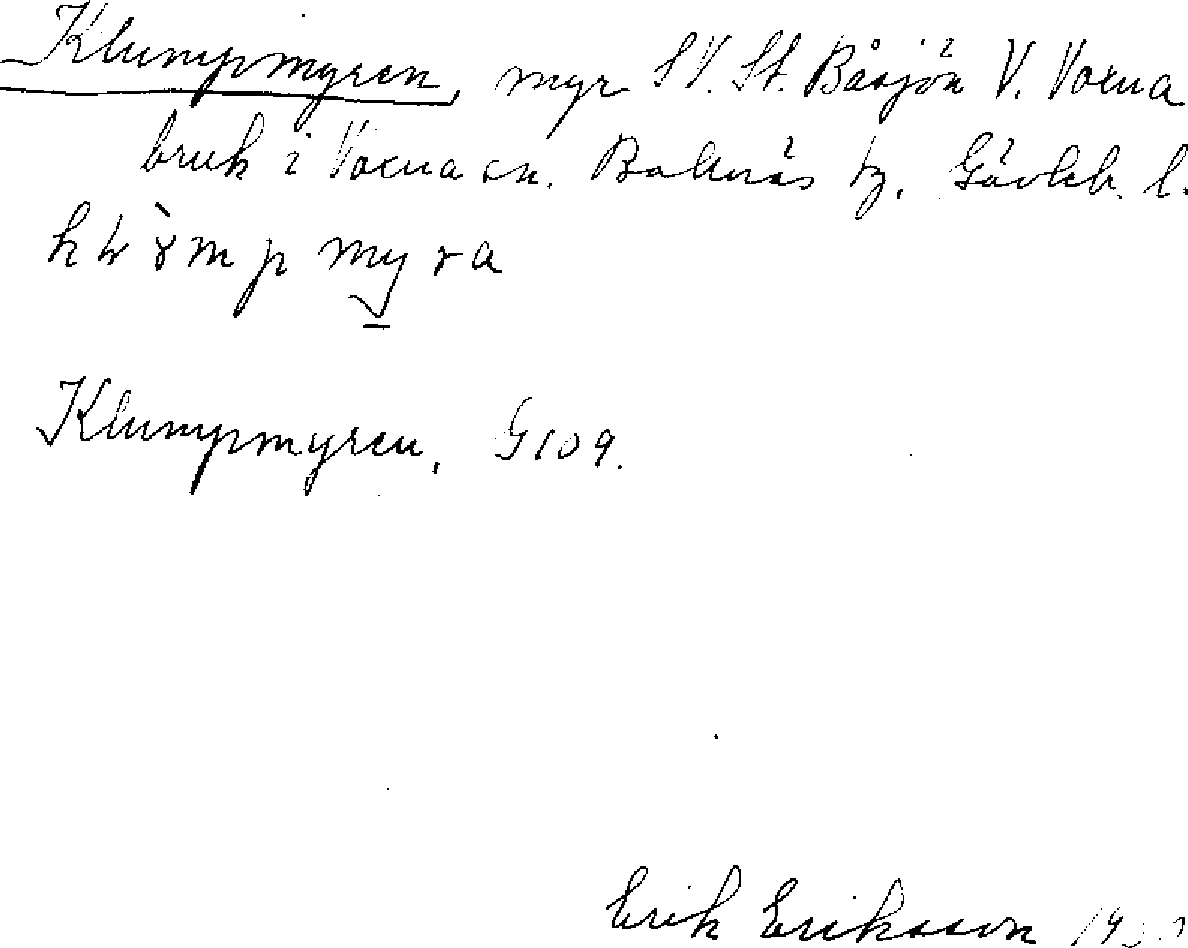 Klumpmyren, myr SV. St. Båsjön V. Voxna
bruk i Voxna sn. Bollnäs tg. Gävleb. l.
myra
Klumpmyren, G109.
Erik Eriksson